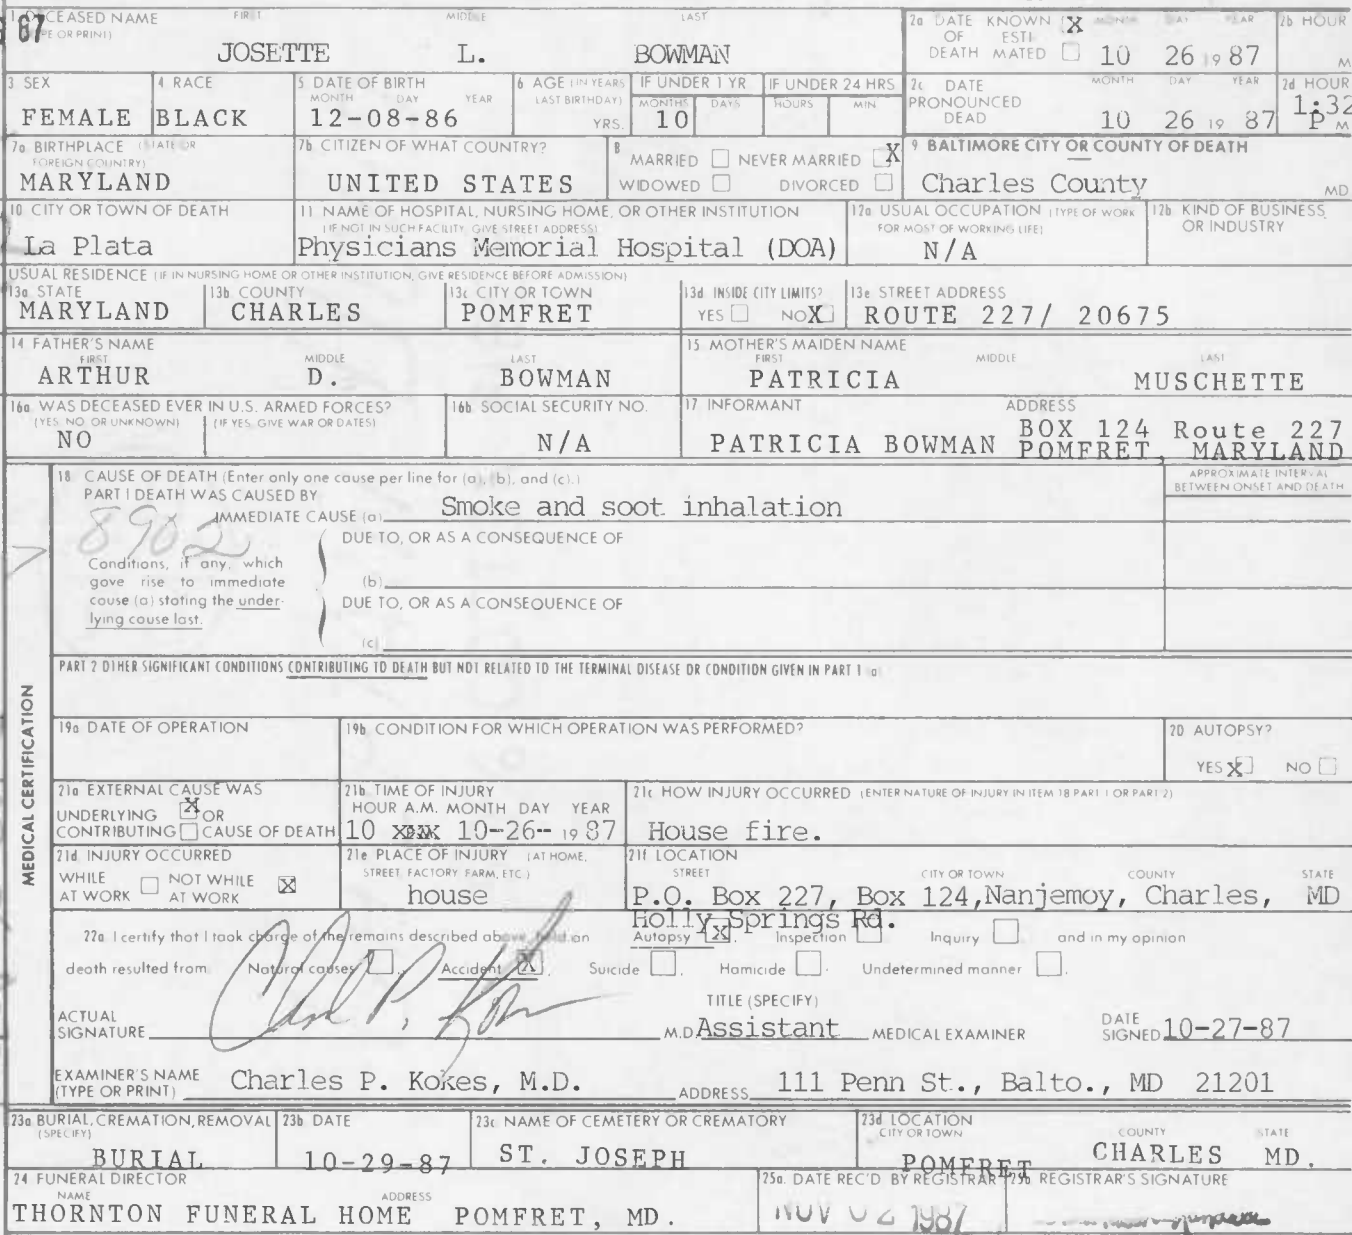 1 DECEASED NAME FIRST MIDDLE LAST
67 (TYPE OR PRINT)
JOSETTE L. BOWMAN
2a DATE KNOWN X MONTH DAY YEAR
OF ESTI-
DEATH MATED 10 26 19 87
2b HOUR
M
3 SEX
FEMALE
4 RACE
BLACK
5 DATE OF BIRTH
MONTH DAY YEAR
12-08-86
6 AGE (IN YEARS
LAST BIRTHDAY)
YRS.
IF UNDER 1 YR
MONTHS DAYS
10
IF UNDER 24 HRS
HOURS MIN
2c DATE MONTH DAY YEAR
PRONOUNCED
DEAD 10 26 19 87
2d HOUR
1:32
P M
7a BIRTHPLACE (STATE OR
FOREIGN COUNTRY)
MARYLAND
7b CITIZEN OF WHAT COUNTRY?
UNITED STATES
8
MARRIED NEVER MARRIED X
WIDOWED DIVORCED
9 BALTIMORE CITY OR COUNTY OF DEATH
Charles County MD
10 CITY OR TOWN OF DEATH
La Plata
11 NAME OF HOSPITAL, NURSING HOME, OR OTHER INSTITUTION
(IF NOT IN SUCH FACILITY, GIVE STREET ADDRESS)
Physicians Memorial Hospital (DOA)
12a USUAL OCCUPATION (TYPE OF WORK
FOR MOST OF WORKING LIFE)
N/A
12b KIND OF BUSINESS
OR INDUSTRY
USUAL RESIDENCE (IF IN NURSING HOME OR OTHER INSTITUTION, GIVE RESIDENCE BEFORE ADMISSION)
13a STATE
MARYLAND
13b COUNTY
CHARLES
13c CITY OR TOWN
POMFRET
13d INSIDE CITY LIMITS?
YES NO X
13e STREET ADDRESS
ROUTE 227/ 20675
14 FATHER'S NAME
FIRST MIDDLE LAST
ARTHUR D. BOWMAN
15 MOTHER'S MAIDEN NAME
FIRST MIDDLE LAST
PATRICIA MUSCHETTE
16a WAS DECEASED EVER IN U.S. ARMED FORCES?
(YES, NO, OR UNKNOWN) (IF YES, GIVE WAR OR DATES)
NO
16b SOCIAL SECURITY NO.
N/A
17 INFORMANT ADDRESS
PATRICIA BOWMAN BOX 124 Route 227
POMFRET, MARYLAND
MEDICAL CERTIFICATION
18 CAUSE OF DEATH (Enter only one cause per line for (a), (b), and (c).)
PART I DEATH WAS CAUSED BY
APPROXIMATE INTERVAL
BETWEEN ONSET AND DEATH
IMMEDIATE CAUSE (a) Smoke and soot inhalation
8902
DUE TO, OR AS A CONSEQUENCE OF
Conditions, if any, which
gave rise to immediate
cause (a) stating the under-
lying cause last.
(b)
DUE TO, OR AS A CONSEQUENCE OF
(c)
PART 2 OTHER SIGNIFICANT CONDITIONS CONTRIBUTING TO DEATH BUT NOT RELATED TO THE TERMINAL DISEASE OR CONDITION GIVEN IN PART 1 (a)
19a DATE OF OPERATION
19b CONDITION FOR WHICH OPERATION WAS PERFORMED?
20 AUTOPSY?
YES X NO
21a EXTERNAL CAUSE WAS
UNDERLYING X OR
CONTRIBUTING CAUSE OF DEATH
21b TIME OF INJURY
HOUR A.M. MONTH DAY YEAR
10 10-26- 19 87
21c HOW INJURY OCCURRED (ENTER NATURE OF INJURY IN ITEM 18 PART 1 OR PART 2)
House fire.
21d INJURY OCCURRED
WHILE NOT WHILE X
AT WORK AT WORK
21e PLACE OF INJURY (AT HOME,
STREET, FACTORY, FARM, ETC.)
house
21f LOCATION
STREET CITY OR TOWN COUNTY STATE
P.O. Box 227, Box 124, Nanjemoy, Charles, MD
Holly Springs Rd.
22a I certify that I took charge of the remains described above, held an Autopsy X, Inspection Inquiry and in my opinion
death resulted from Natural causes, Accident X, Suicide, Homicide. Undetermined manner.
ACTUAL
SIGNATURE Charles P. Kokes
M.D.
TITLE (SPECIFY)
Assistant MEDICAL EXAMINER
DATE
SIGNED 10-27-87
EXAMINER'S NAME
(TYPE OR PRINT) Charles P. Kokes, M.D.
ADDRESS 111 Penn St., Balto., MD 21201
23a BURIAL, CREMATION, REMOVAL
(SPECIFY)
BURIAL
23b DATE
10-29-87
23c NAME OF CEMETERY OR CREMATORY
ST. JOSEPH
23d LOCATION
CITY OR TOWN COUNTY STATE
POMFRET CHARLES MD.
24 FUNERAL DIRECTOR
NAME ADDRESS
THORNTON FUNERAL HOME POMFRET, MD.
25a. DATE REC'D BY REGISTRAR
NOV 02 1987
25b REGISTRAR'S SIGNATURE